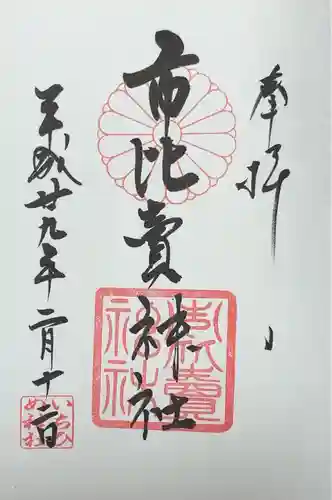 奉拝
市比賣神社
平成廿九年二月十二日
いちひめ神社